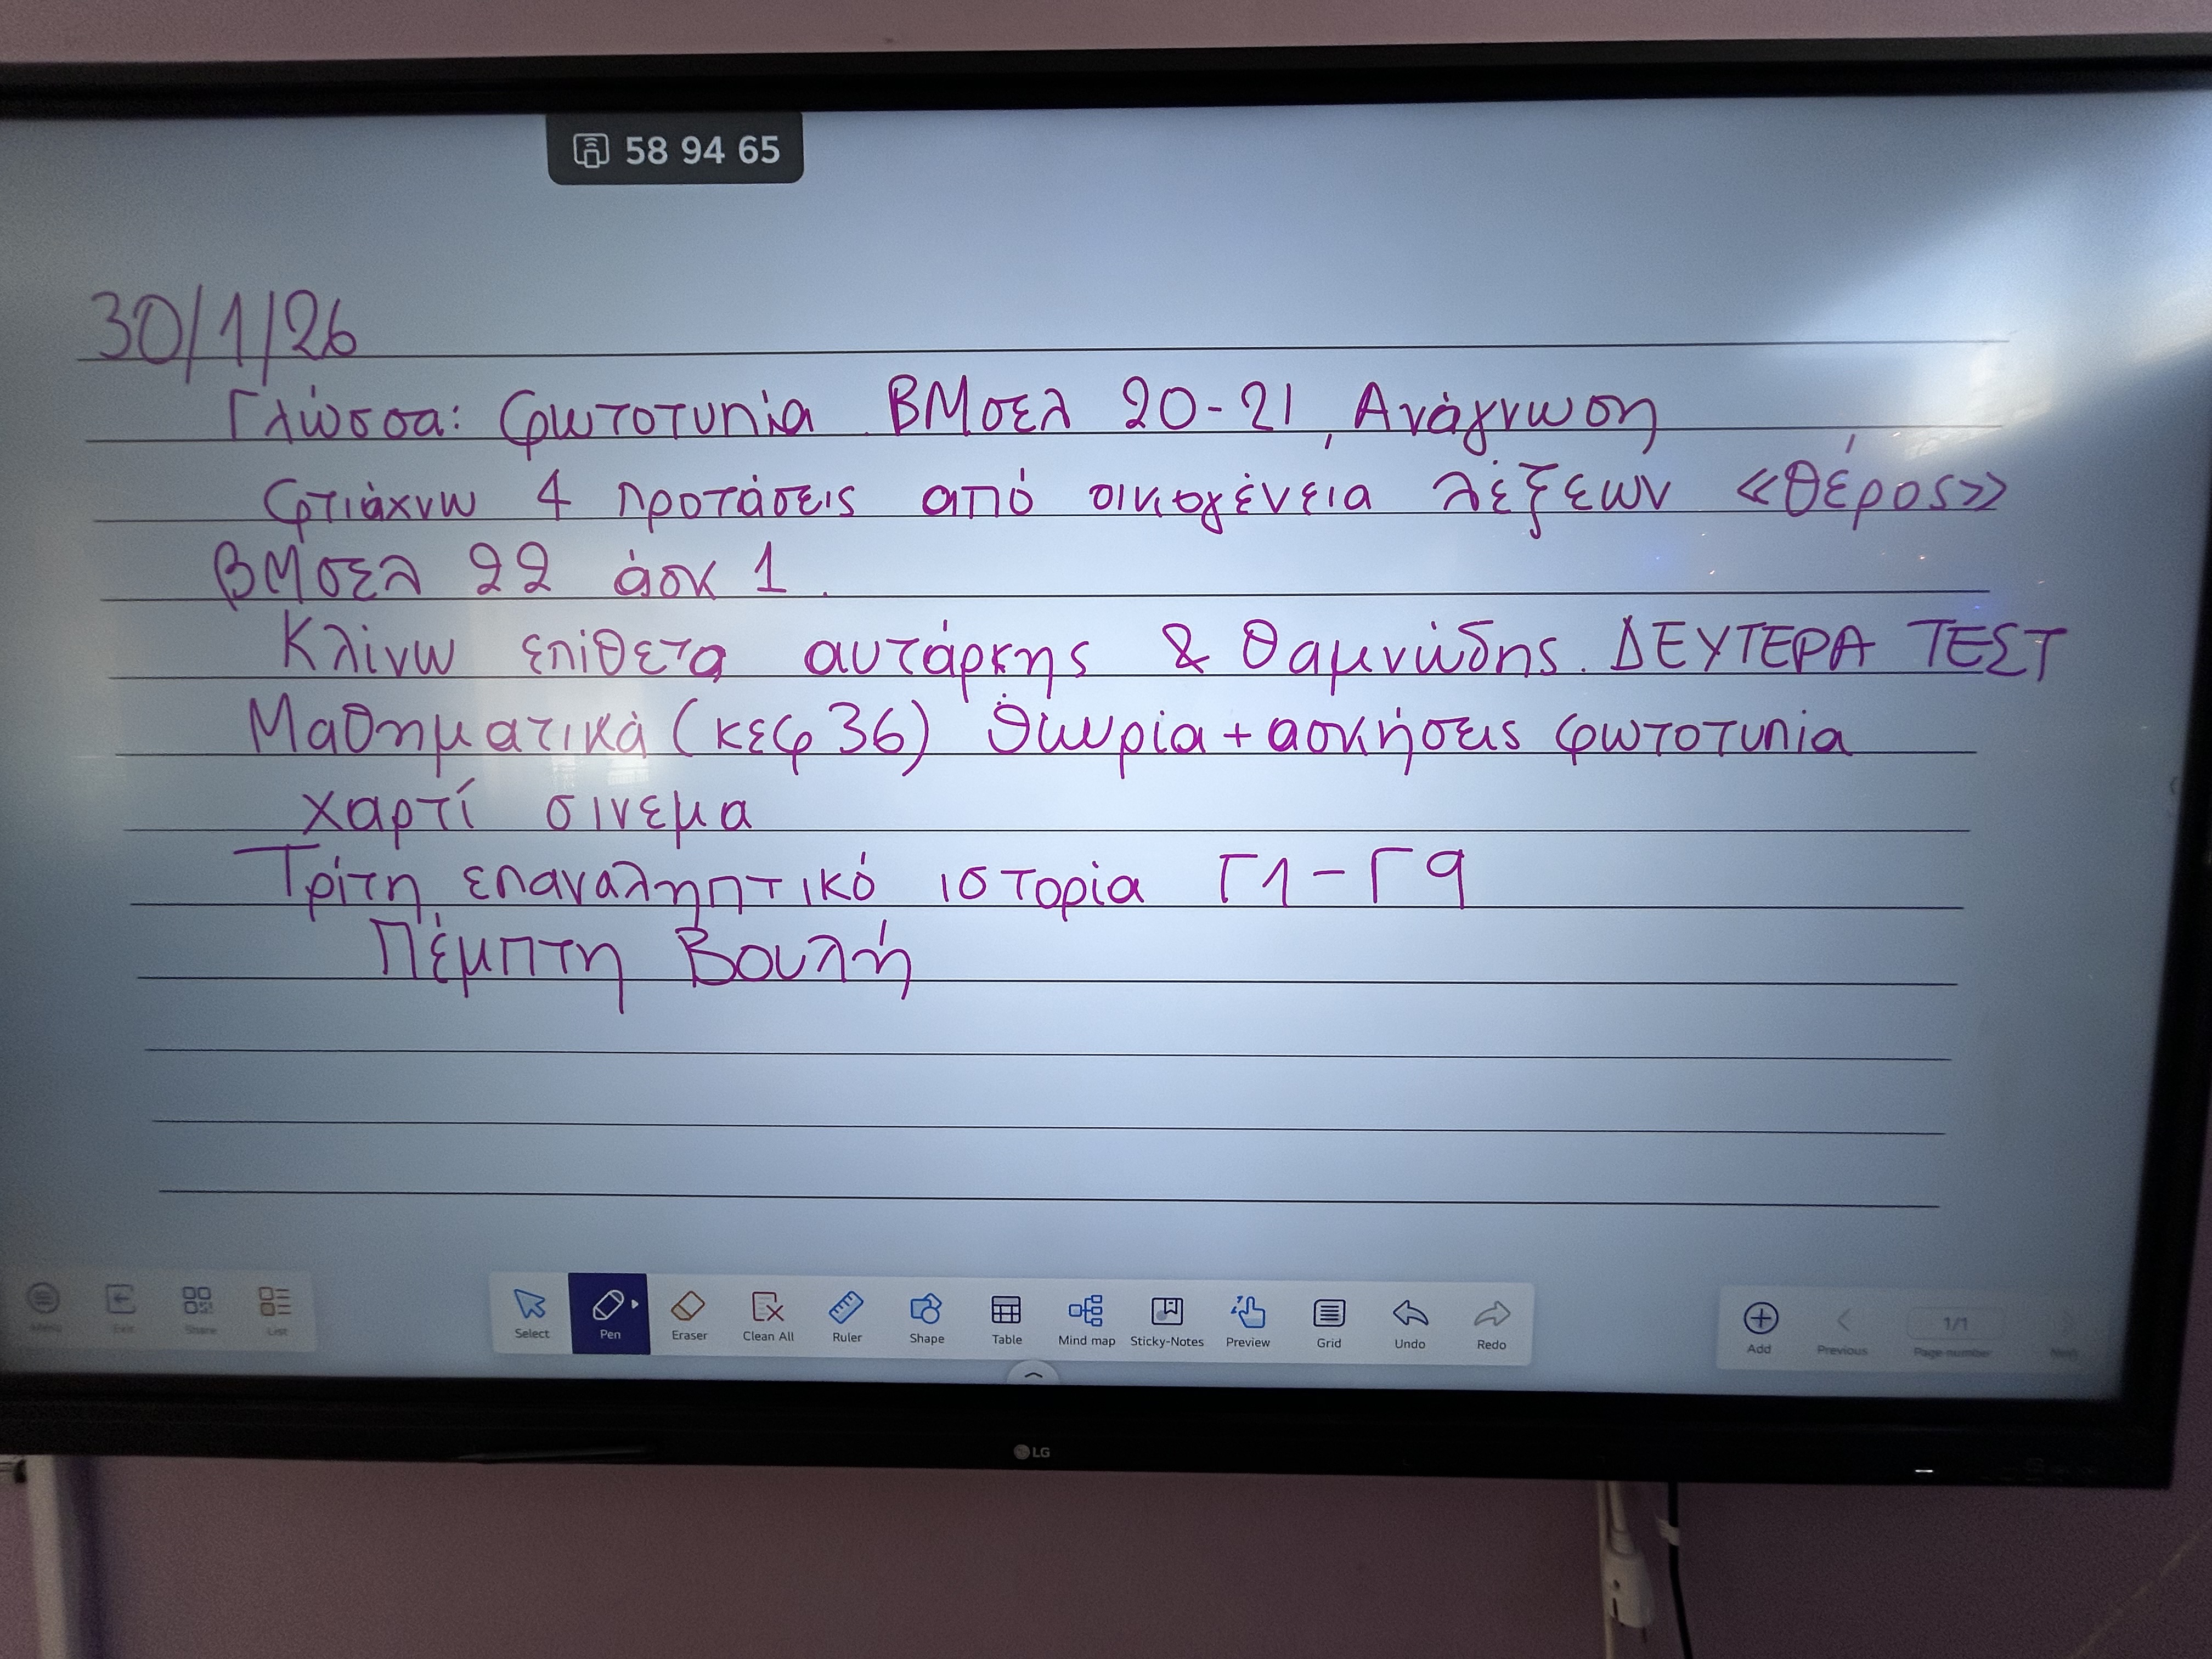 58 94 65
30/1/26
Γλώσσα: Φωτοτυπία ΒΜσελ 20-21, Ανάγνωση
Φτιάχνω 4 προτάσεις από οικογένεια λέξεων «θέρος»
ΒΜσελ 22 άσκ 1.
Κλίνω επίθετα αυτάρκης & θαμνώδης. ΔΕΥΤΕΡΑ ΤΕΣΤ
Μαθηματικά (κεφ 36) θεωρία + ασκήσεις φωτοτυπία
χαρτί σινεμα
Τρίτη επαναληπτικό ιστορία Γ1-Γ9
Πέμπτη Βουλή
Menu Exit Share List Select Pen Eraser Clean All Ruler Shape Table Mind map Sticky-Notes Preview Grid Undo Redo Add Previous 1/1 Page number Next
LG